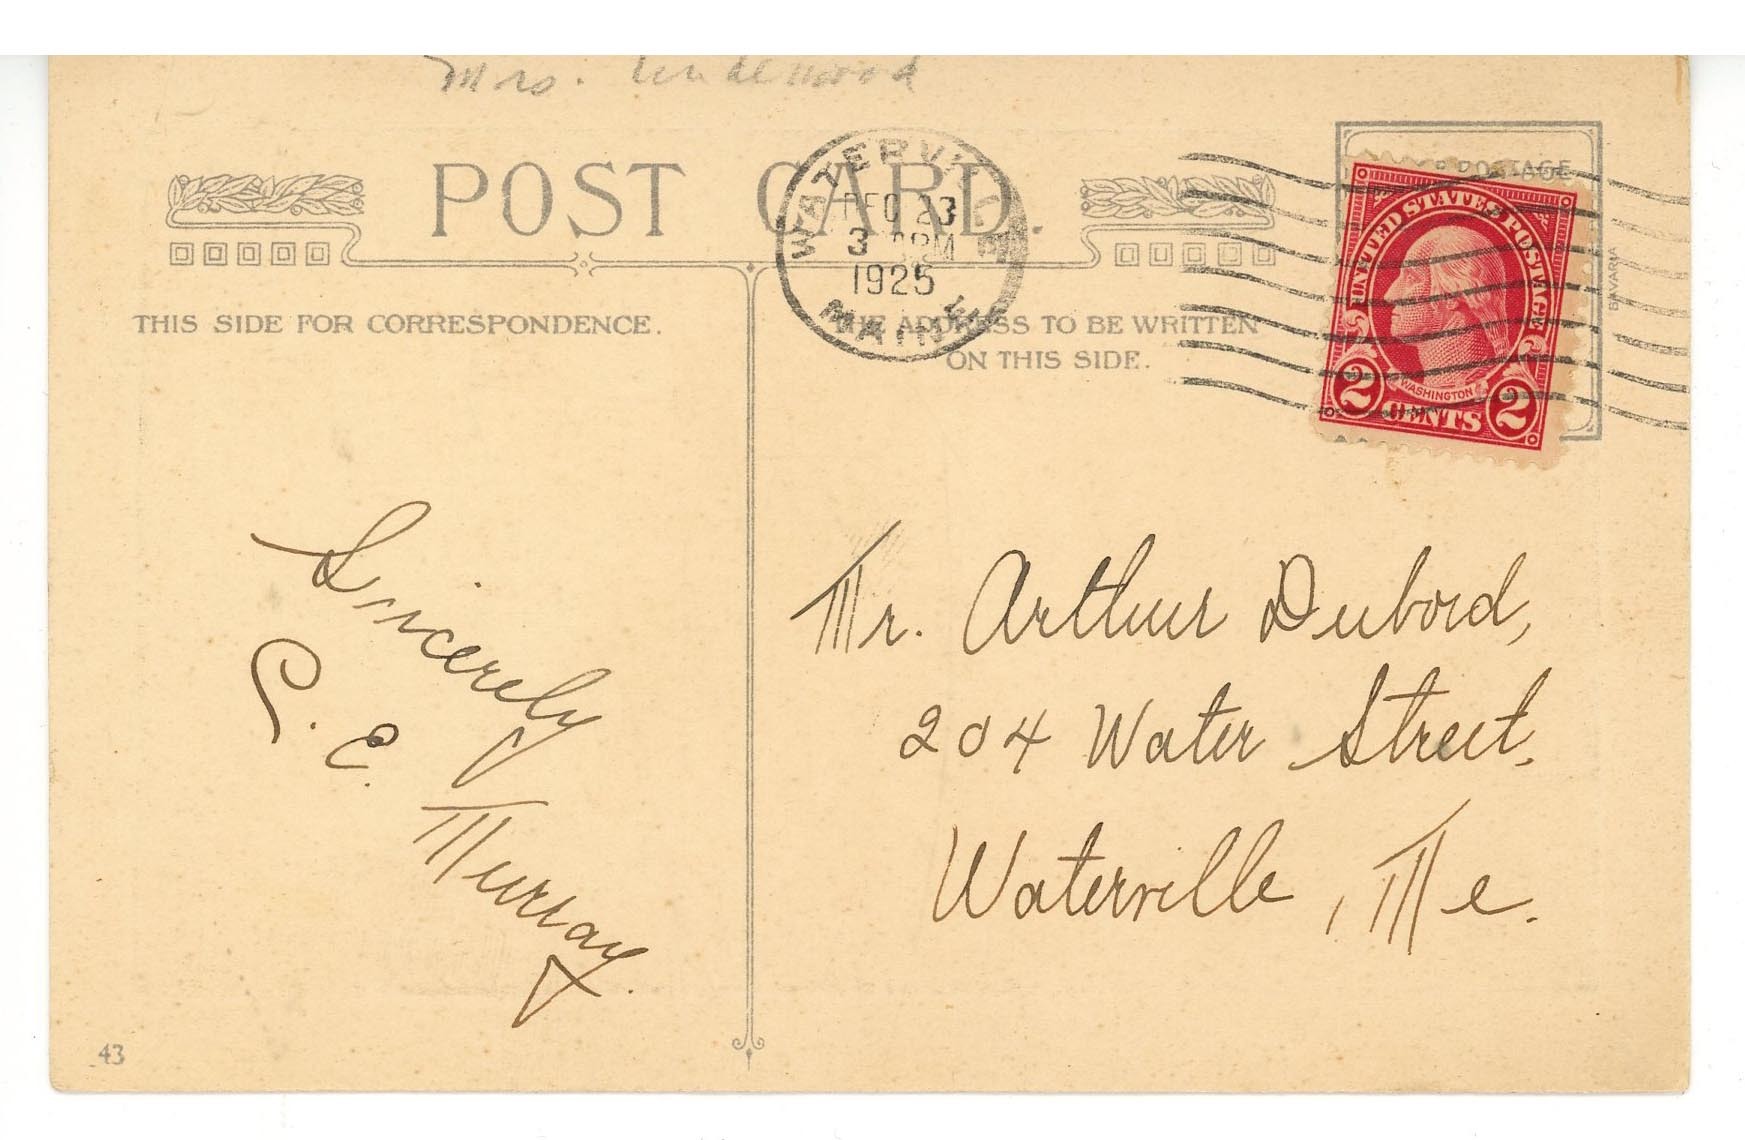 Mrs. Underwood
POST CARD.
WATERVILLE
DEC 23
3 PM
1925
MAINE
POSTAGE
UNITED STATES POSTAGE
WASHINGTON
2 CENTS 2
BAVARIA
THIS SIDE FOR CORRESPONDENCE.
THE ADDRESS TO BE WRITTEN
ON THIS SIDE.
Sincerely
C. E. Murray.
Mr. Arthur Dubord,
204 Water Street,
Waterville, Me.
43